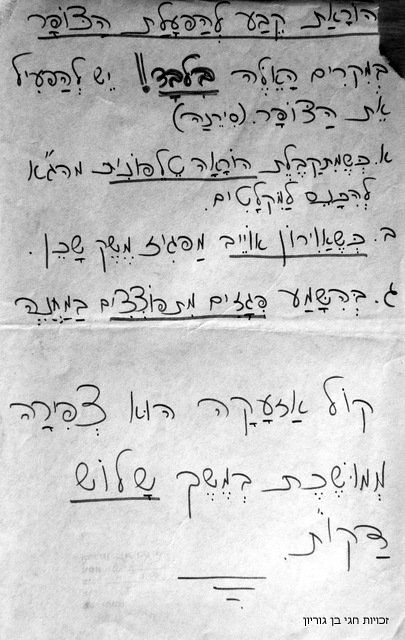 הוֹרָאַת קֶבַע לְהַפְעָלַת הַצּוֹפָר
בַּמִּקְרִים הָאֵלֶּה בִּלְבָד!! יֵשׁ לְהַפְעִיל
אֶת הַצּוֹפָר. (סִירֶנָה)
א. כְּשֶׁמִּתְקַבֶּלֶת הוֹרָאָה טֶלֶפוֹנִית מהג"א
לְהִכָּנֵס לַמִּקְלָטִים.
ב. כְּשֶׁאֲוִירוֹן אוֹיֵב מַפְגִּיז מֶשֶׁק שָׁכֵן.
ג. בְּהִשָּׁמַע פְּגָזִים מִתְפּוֹצְצִים בַּמַּחֲנֶה
קוֹל אַזְעָקָה הוּא צְפִירָה
מְמוּשֶׁכֶת בְּמֶשֶׁךְ שָׁלוֹשׁ
דַּקּוֹת.
זכויות חגי בן גוריון